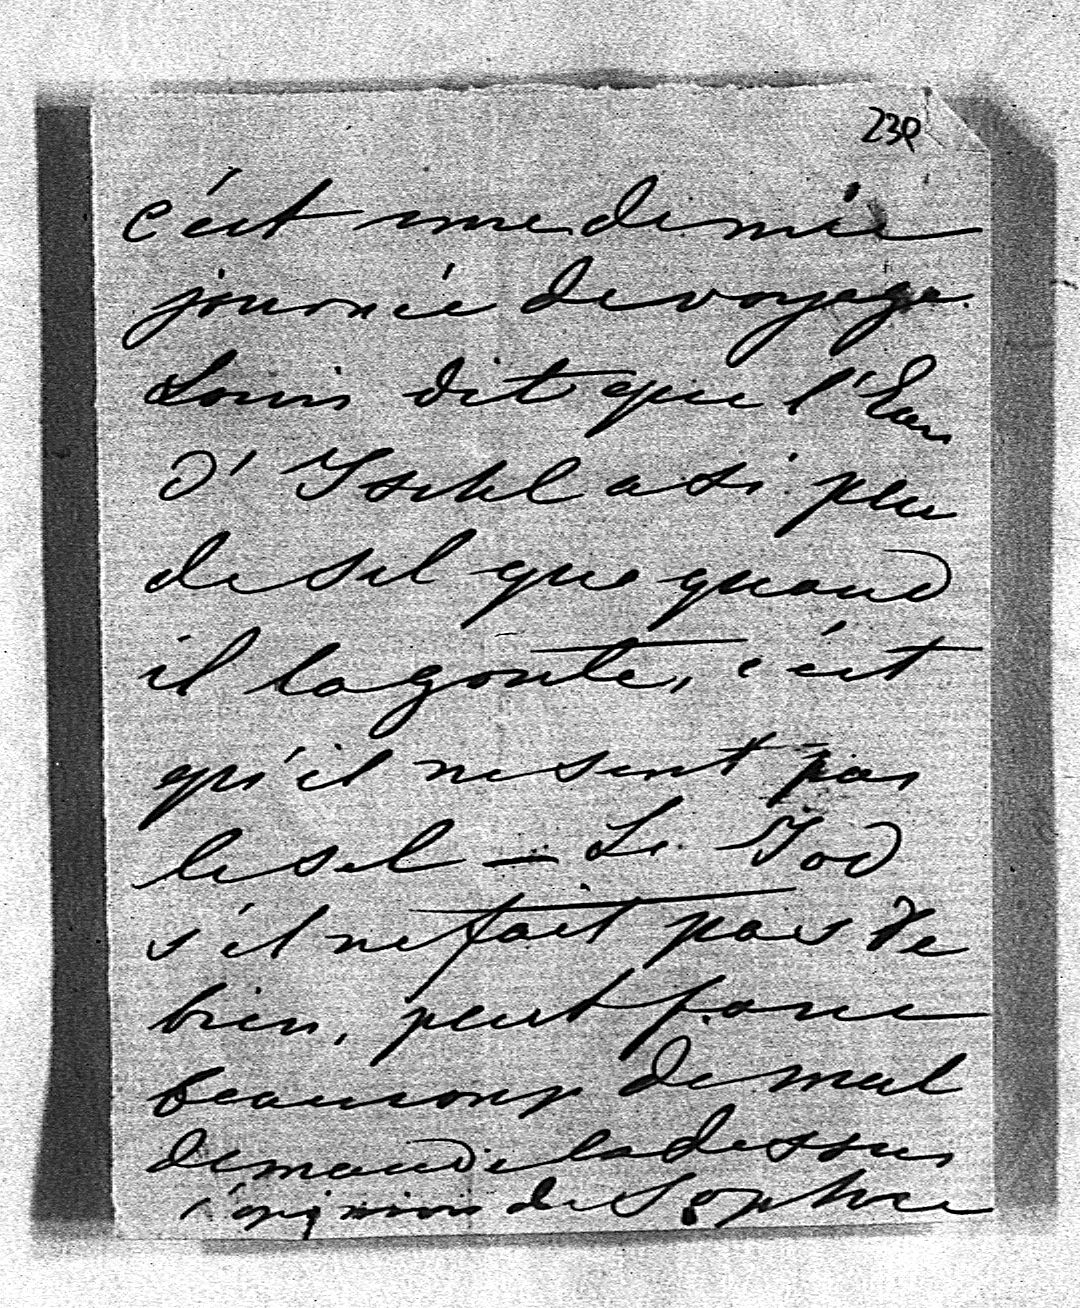 239
c'est une demie
journée de voyage.
Louis dit que l'Eau
d'Ischl a si peu
de sel que quand
il la goute, c'est
qu'il ne sent pas
le sel — Le Jod
s'il ne fait pas de
bien, peut faire
beaucoup de mal
demande la dessus
l'opinion de Sophie